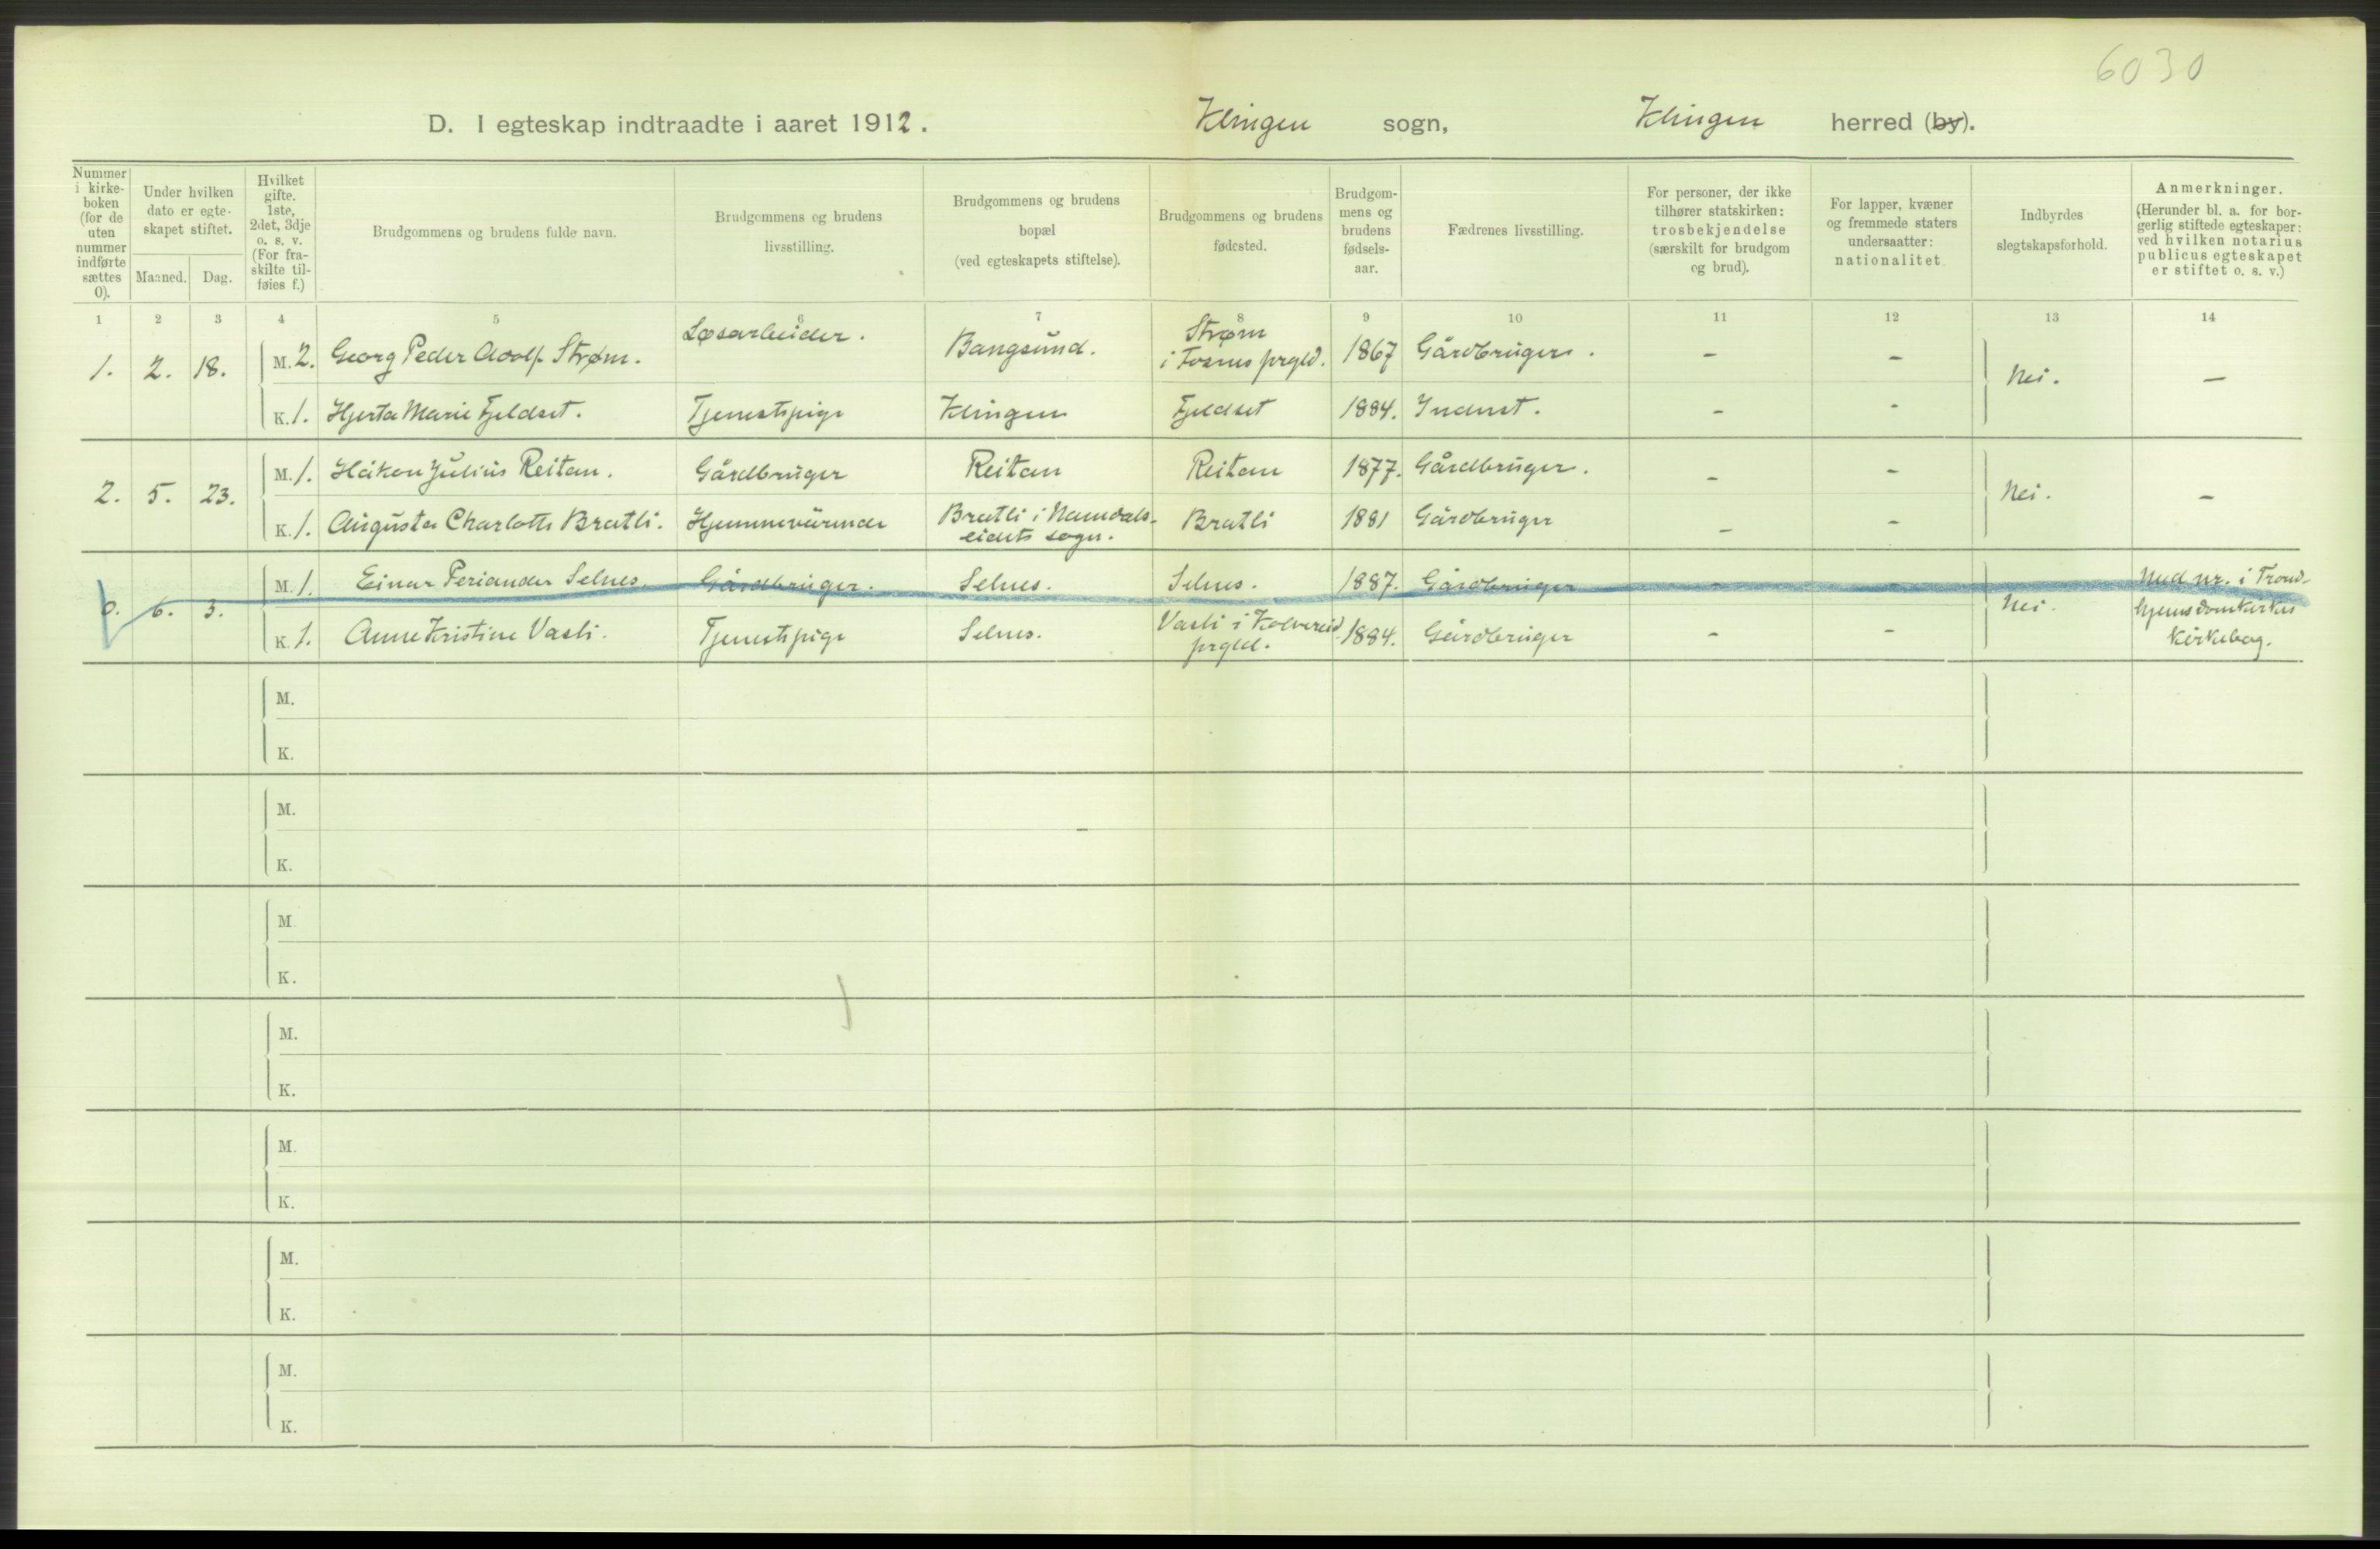 6030
D. I egteskap indtraadte i aaret 1912. Klingen sogn, Klingen herred (by).
Nummer i kirke- boken (for de uten nummer indførte sættes 0).
Under hvilken dato er egte- skapet stiftet.
Maaned. Dag.
Hvilket gifte. 1ste, 2det, 3dje o. s. v. (For fra- skilte til- føies f.)
Brudgommens og brudens fulde navn.
Brudgommens og brudens livsstilling.
Brudgommens og brudens bopæl (ved egteskapets stiftelse).
Brudgommens og brudens fødested.
Brudgom- mens og brudens fødsels- aar.
Fædrenes livsstilling.
For personer, der ikke tilhører statskirken: trosbekjendelse (særskilt for brudgom og brud).
For lapper, kvæner og fremmede staters undersaatter: nationalitet.
Indbyrdes slegtskapsforhold.
Anmerkninger. (Herunder bl. a. for bor- gerlig stiftede egteskaper: ved hvilken notarius publicus egteskapet er stiftet o. s. v.)
1 2 3 4 5 6 7 8 9 10 11 12 13 14
1. 2. 18. M. 2. Georg Peder Adolf Strøm. Løsarbeider. Bangsund. Strøm i Fosnes prgld. 1867 Gårdbruger. - - Nei. -
K. 1. Hjerta Marie Fjeldset. Tjenestpige Klingen Fjeldset 1884. Inderst. - -
2. 5. 23. M. 1. Håkon Julius Reitan. Gårdbruger Reitan Reitan 1877. Gårdbruger. - - Nei. -
K. 1. Augusta Charlotte Bratli. Hjemmeværende Bratli i Namdals- eidets sogn. Bratli 1881 Gårdbruger - -
0. 6. 3. M. 1. Einar Periander Selnes. Gårdbruger. Selnes. Selnes. 1887. Gårdbruger - - Nei. Med nr. i Trond- hjems domkirkes kirkebog.
K. 1. Anne Kristine Vasli. Tjenestpige Selnes. Vasli i Kolvereid prgld. 1884. Gårdbruger - -
M.
K.
M.
K.
M.
K.
M.
K.
M.
K.
M.
K.
M.
K.